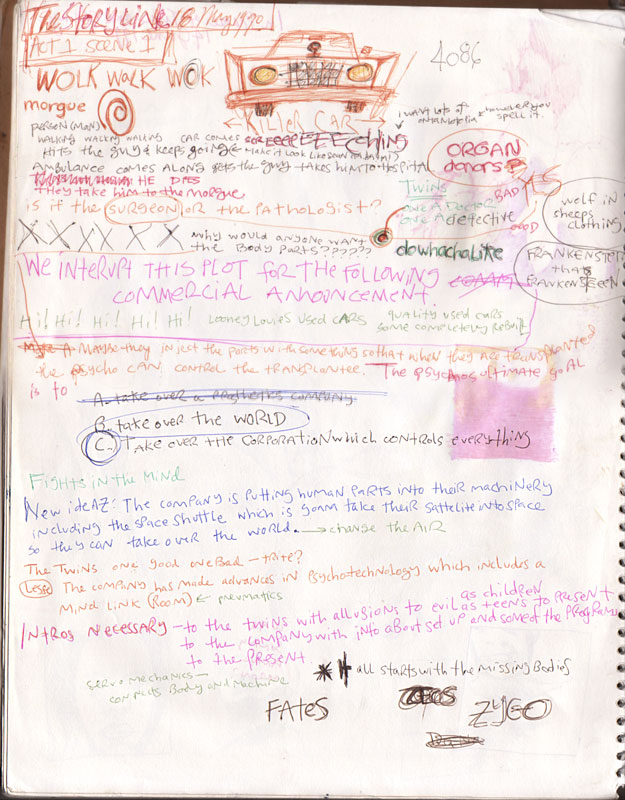 The Story Line 18 May 1990
Act 1 Scene 1
WOLK WALK WOK
4086
morgue
KILLER CAR
i want lots of onomatopoeia & however you spell it.
PERSON (MAN)
WALKING WALKING WALKING CAR COMES SCREEEEEEEECHING
HITS the guy & keeps going
AMBULANCE comes along gets the guy takes him to hospital
HE DIES
They take him to the morgue
ORGAN donors?
YES
Twins
one A Doctor BAD
one A detective GOOD
is it the SURGEON or the PATHOLOGIST?
wolf in sheeps clothing
X X X X X X WHY WOULD ANYONE WANT the BODY PARTS??????
dowhachalike
FRANKENSTEIN thats FRANKENSTEEN
WE INTERUPT THIS PLOT FOR THE FOLLOWING
COMMERCIAL ANNOUNCEMENT.
Hi! Hi! Hi! Hi! Hi! Looney Louie's Used CARS quality used cars some completely Rebuilt
MAYBE they inject the parts with something so that when they are transplanted
the psycho can control the transplantee. The psychos ultimate goal
is to
A. take over a prosthetics company.
B. take over the WORLD
C. Take over the CORPORATION which controls everything
Fights in the Mind
New ideAZ: The company is putting human parts into their machinery
including the space shuttle which is gonna take their sattelite into space
so they can take over the world. → change the AIR
The Twins one good one Bad – trite?
The company has made advances in psychotechnology which includes a
Mind Link (Room) ← pneumatics
Intros Necessary – to the twins with allusions to evil as children as teens to present
to the company with info about set up and some of the programs
to the present
* It all starts with the missing Bodies
servo mechanics –
connects Body and machine
FAtes
ZYGO